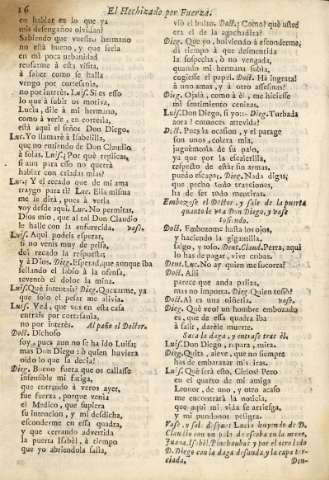 16
El Hechizado por Fuerza.
en hablar en lo que ya
mis desengaños olvidan?
Sabiendo que vuestro hermano
no está bueno, y que seria
en mi poca urbanidad
escusarme à esta visita,
à saber como se halla
vengo por cortesania,
no por interés. Luis. Si es esso
lo que à subir os motiva,
Lucia, dile à mi hermano,
como à verle, en cortesia,
està aqui el señor Don Diego.
Luc. Yo llamaré à Isabelilla,
que no rusiendo de Don Claudio
à solas. Luis. Por què replicas,
si aun para esso no quiera
hablar con criadas mias?
Luc. Y el recado que de mi ama
traygo para èl? Luc. Ella misma
me lo dirà, pues à verla
voy desde aqui. Luc. No permitas,
Dios mio, que al tal Don Claudio
le halle con la enfurecida. vase.
Luis. Aqui podeis esperar,
si no venis muy de prisa,
del recado la respuesta;
y à Dios. Dieg. Esperad, que aunque iba
sellando el labio à la ofensa,
rebentó el dolor la mina.
Luis. Què intentais? Dieg. Quexarme, ya
que solo el pesar me alivia.
Luis. Ved, que vos en esta casa
entrais por cortesania,
no por interés. Al paño el Doctor.
Doct. Dichoso
soy, pues aun no se ha ido Luisa;
mas Don Diego: ò quien huviera
oido lo que la decia!
Dieg. Bueno fuera que os callasse
insensible mi fatiga,
que entrando à veros ayer,
fue fuerza, porque venia
el Medico, que supiera
su intencion, y mi desdicha,
esconderme en essa quadra,
y que cerrando advertida
la puerta Isabèl, à tiempo
que yo abriendola salia,
viò el bulto. Doct. Como? què usted
era el de la agachadiza?
Dieg. Que yo, bolviendo à esconderme,
di tiempo à que desmentida
la sospecha, ò no vengada,
quando mi hermana subia,
cogiesse el papel. Doct. Ha ingrata!
à uno amas, y à otro assesinas?
Dieg. Ojalà, como à èl, me hiciesse
mi sentimiento cenizas.
Luis. Don Diego, si yo:- Dieg. Turbada
aora? conoces atrevidas.
Doct. Pues la ocasion, y el parage
son unos, colera mia,
juguemosela de paso,
ya que por la escalerilla,
respecto de estàr sin armas,
puedo escapar. Dieg. Nada digas;
que pecho todo trayciones,
ha de ser todo mentiras.
Embozase el Doctor, y sale de la puerta
quanto le vea Don Diego, y vase
tosiendo.
Doct. Embozome hasta los ojos,
y haciendo la gigantilla,
salgo, y toso. Dent. Claud. Perra, aqui
lo has de pagar, vive cribas.
Dent. Luc. No ay quien me socorra?
Doct. Alli
parece que anda pariza,
mas no importa. Dieg. Quien tosiò?
Doct. Al ca una oseheria. vase.
Dieg. Què veo! un hombre embozado
es, que de essa quadra iba
à salir, darèle muerte.
Saca la daga, y entrase tras èl.
Luis. Don Diego, repara, mira.
Dieg. Quita, aleve, que no siempre
has de embarazar mis iras.
Luis. Què serà esto, Cielos! Pero
en el quarto de mi amiga
Leonor, de uno, y otro acaso
me encontrarà la noticia,
que aqui mi vida se arriesga,
y mi pundonor peligra.
Vase, y sal. despav. Lucia huyendo de D.
Claudio con un palo de escoba en la mano,
Juana, Isabèl, Pinchauvas; y por el otro lado
D. Diego con la daga desnuda, y la capa ter-
ciada, Den-